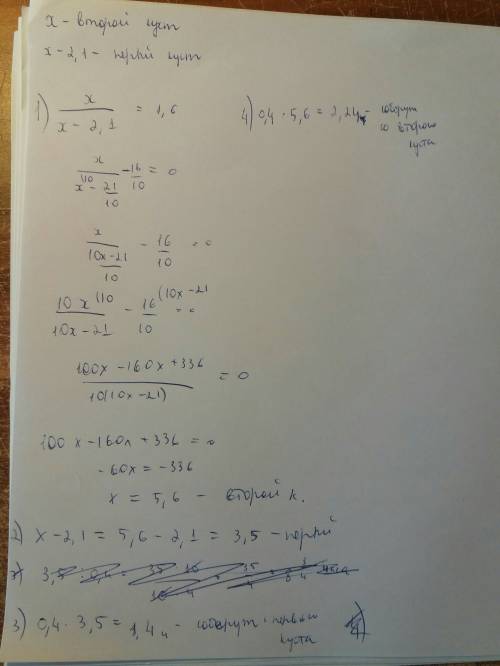 x - второй куст
x - 2,1 - первый куст
1) x / (x - 2,1) = 1,6
x / (x^(10 - 21/10) - 16/10 = 0
x / ((10x - 21)/10) - 16/10 = 0
10x^(10 / (10x - 21) - 16^(10x - 21 / 10 = 0
(100x - 160x + 336) / (10(10x - 21)) = 0
100x - 160x + 336 = 0
- 60x = - 336
x = 5,6 - второй к.
2) x - 2,1 = 5,6 - 2,1 = 3,5 - первый
3) 0,4 · 3,5 = 1,4 ч - соберут с первого
куста
4) 0,4 · 5,6 = 2,24 ч - соберут
со второго
куста